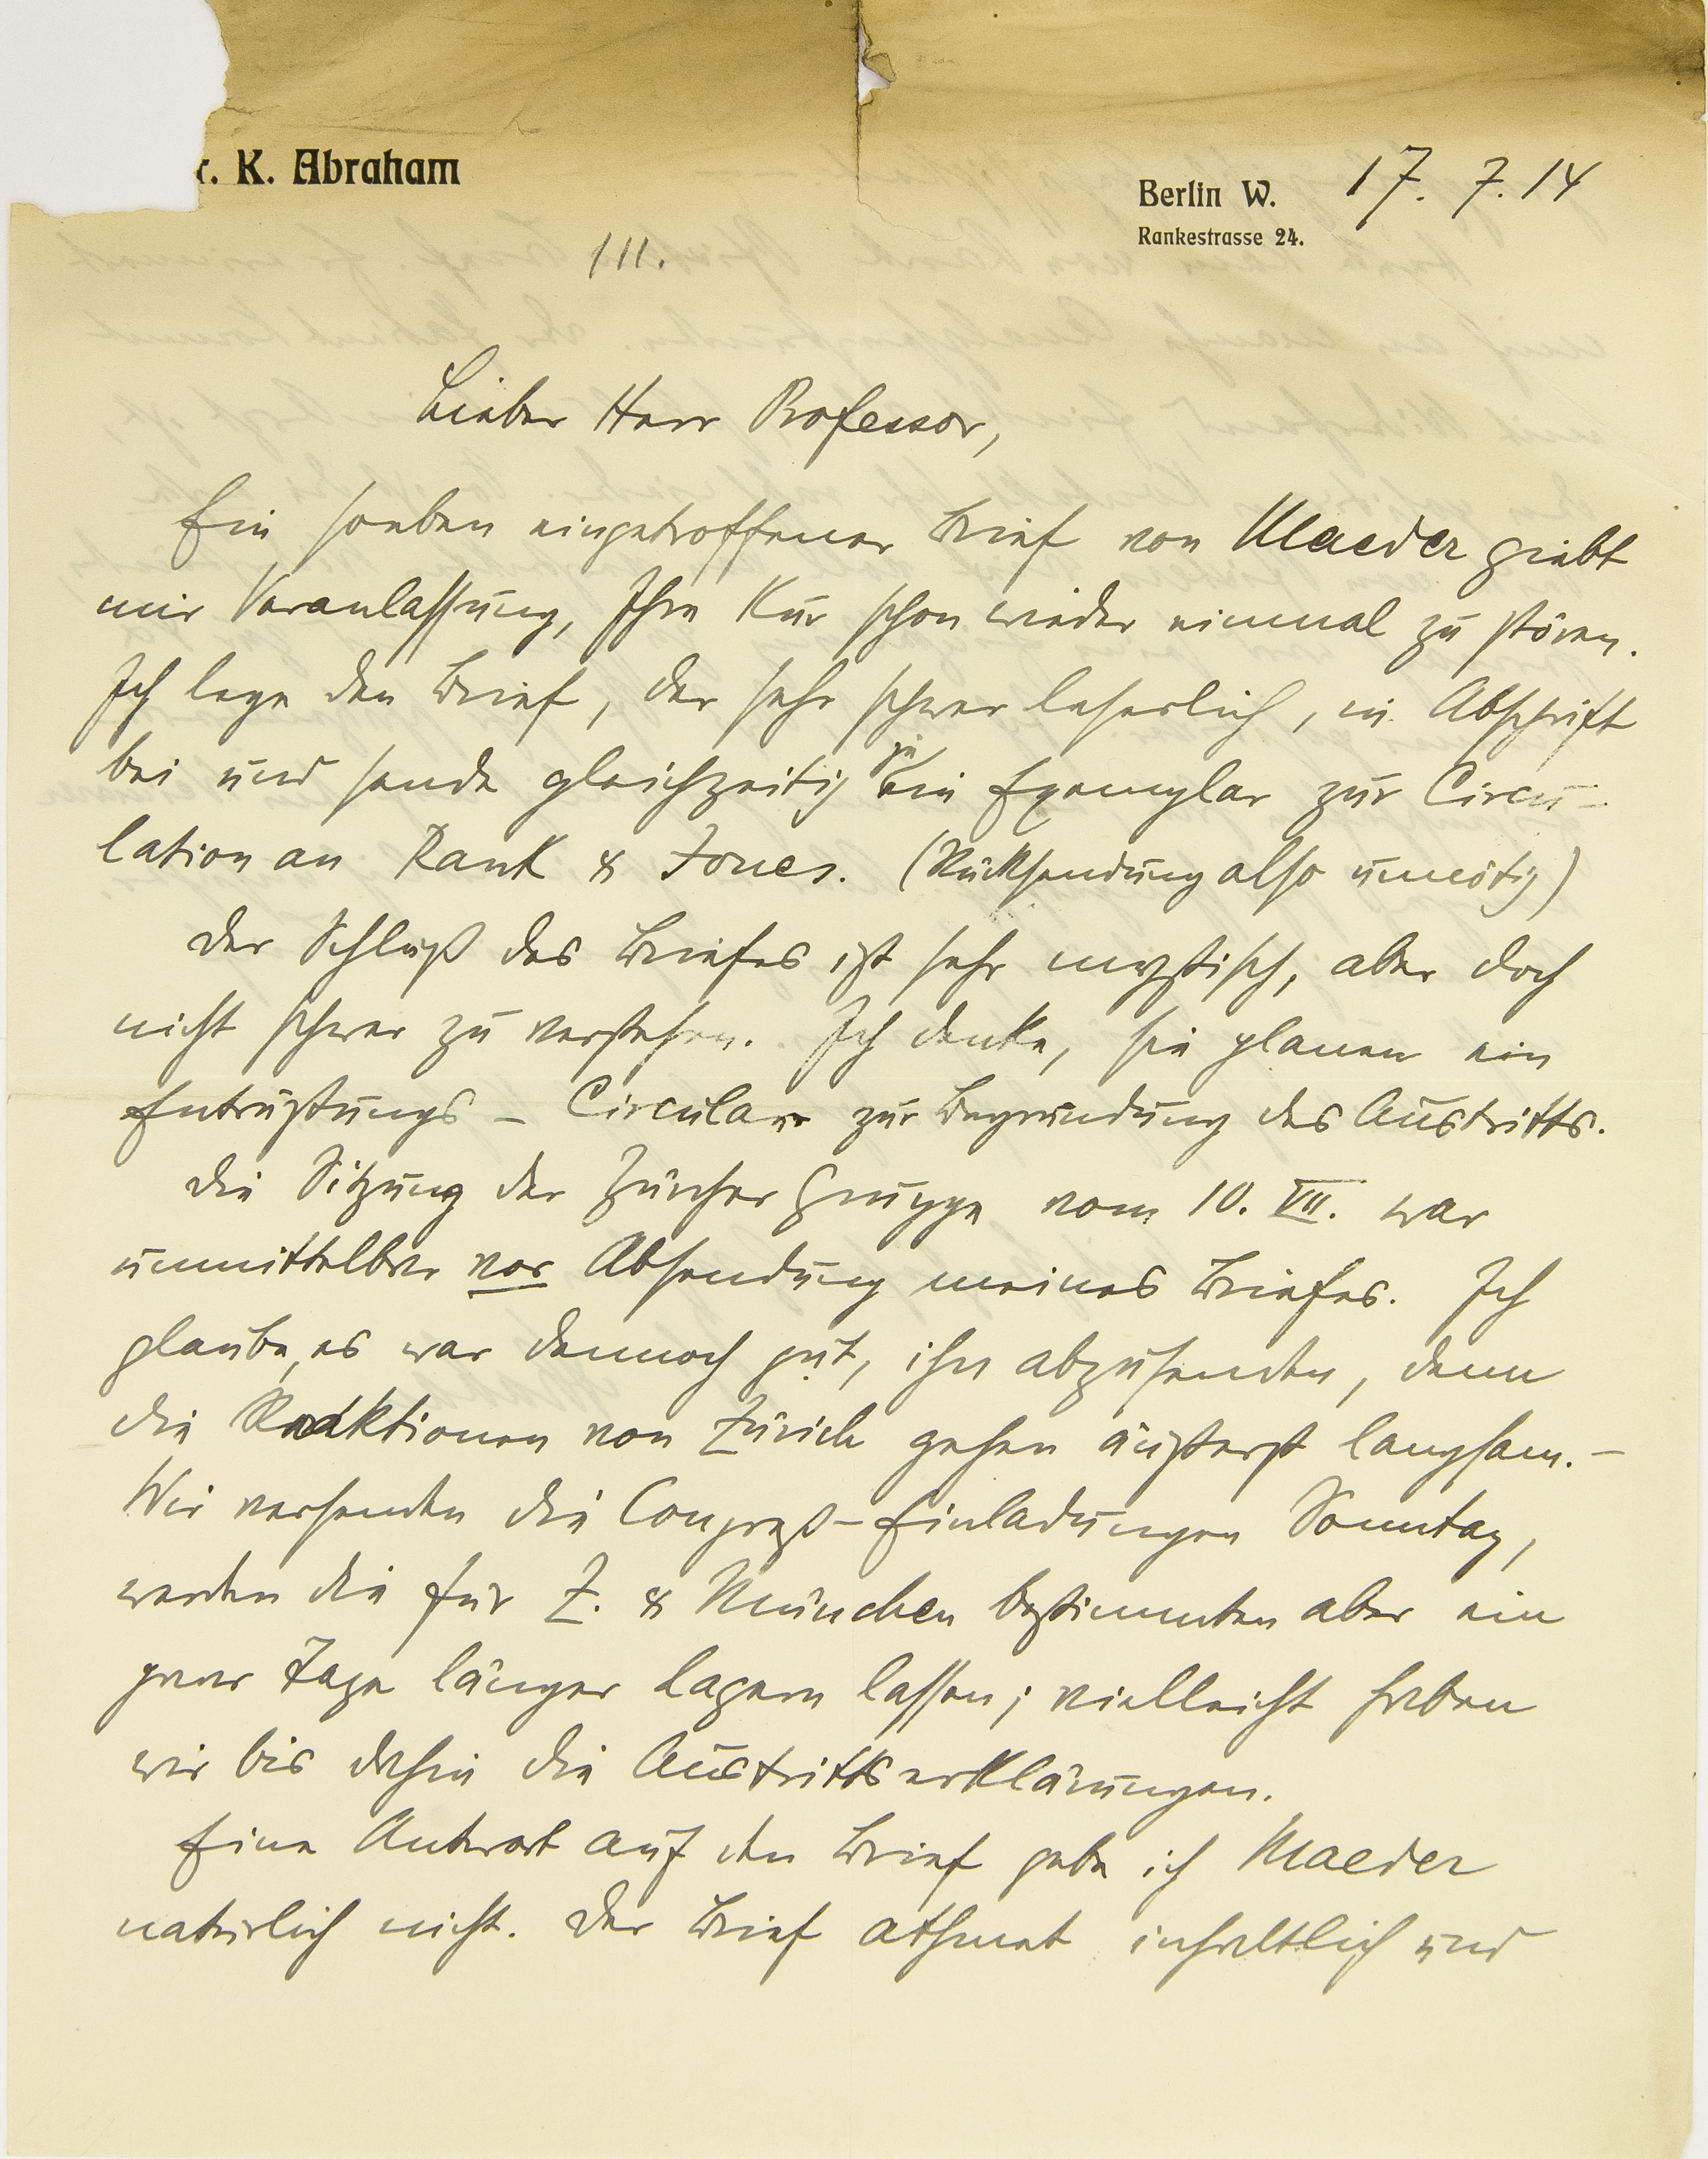 r. K. Abraham
Berlin W. 17. 7. 14
Rankestrasse 24.
111.
Lieber Herr Professor,
Ein soeben eingetroffener Brief von Maeder giebt
mir Veranlassung, Ihre Kur schon wieder einmal zu stören.
Ich lege den Brief, der sehr schwer leserlich, in Abschrift
bei und sende gleichzeitig je ein Exemplar zur Circu-
lation an Rank & Jones. (Rücksendung also unnötig)
Der Schluß des Briefes ist sehr mystisch, aber doch
nicht schwer zu verstehen. Ich denke, sie planen ein
Entrüstungs-Circular zur Begründung des Austritts.
Die Sitzung der Züricher Gruppe vom 10. VII. war
unmittelbar vor Absendung meines Briefes. Ich
glaube, es war dennoch gut, ihn abzusenden, denn
die Reaktionen von Zürich gehen äußerst langsam. –
Wir versenden die Congreß-Einladungen Sonntag,
werden die für Z. & München bestimmten aber ein
paar Tage länger lagern lassen; vielleicht haben
wir bis dahin die Austrittserklärungen.
Eine Antwort auf den Brief gebe ich Maeder
natürlich nicht. Der Brief athmet inhaltlich und